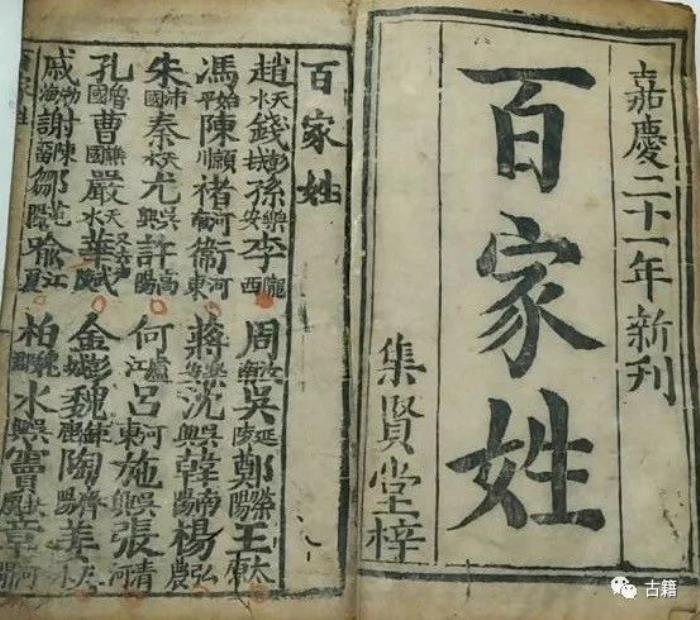 嘉慶二十一年新刊
百家姓
集賢堂梓
百家姓
趙天水錢彭城孫樂安李隴西周汝南吳延陵鄭滎陽王太原
馮始平陳潁川褚河南衛河東蔣樂安沈吳興韓南陽楊弘農
朱沛國秦天水尤吳興許高陽何廬江呂河東施吳興張清河
孔魯國曹譙國嚴天水華武陵金彭城魏鉅鹿陶濟陽姜天水
戚渤海謝陳留鄒范陽喻江夏柏魏郡水吳興竇扶風章河間
百家姓
古籍